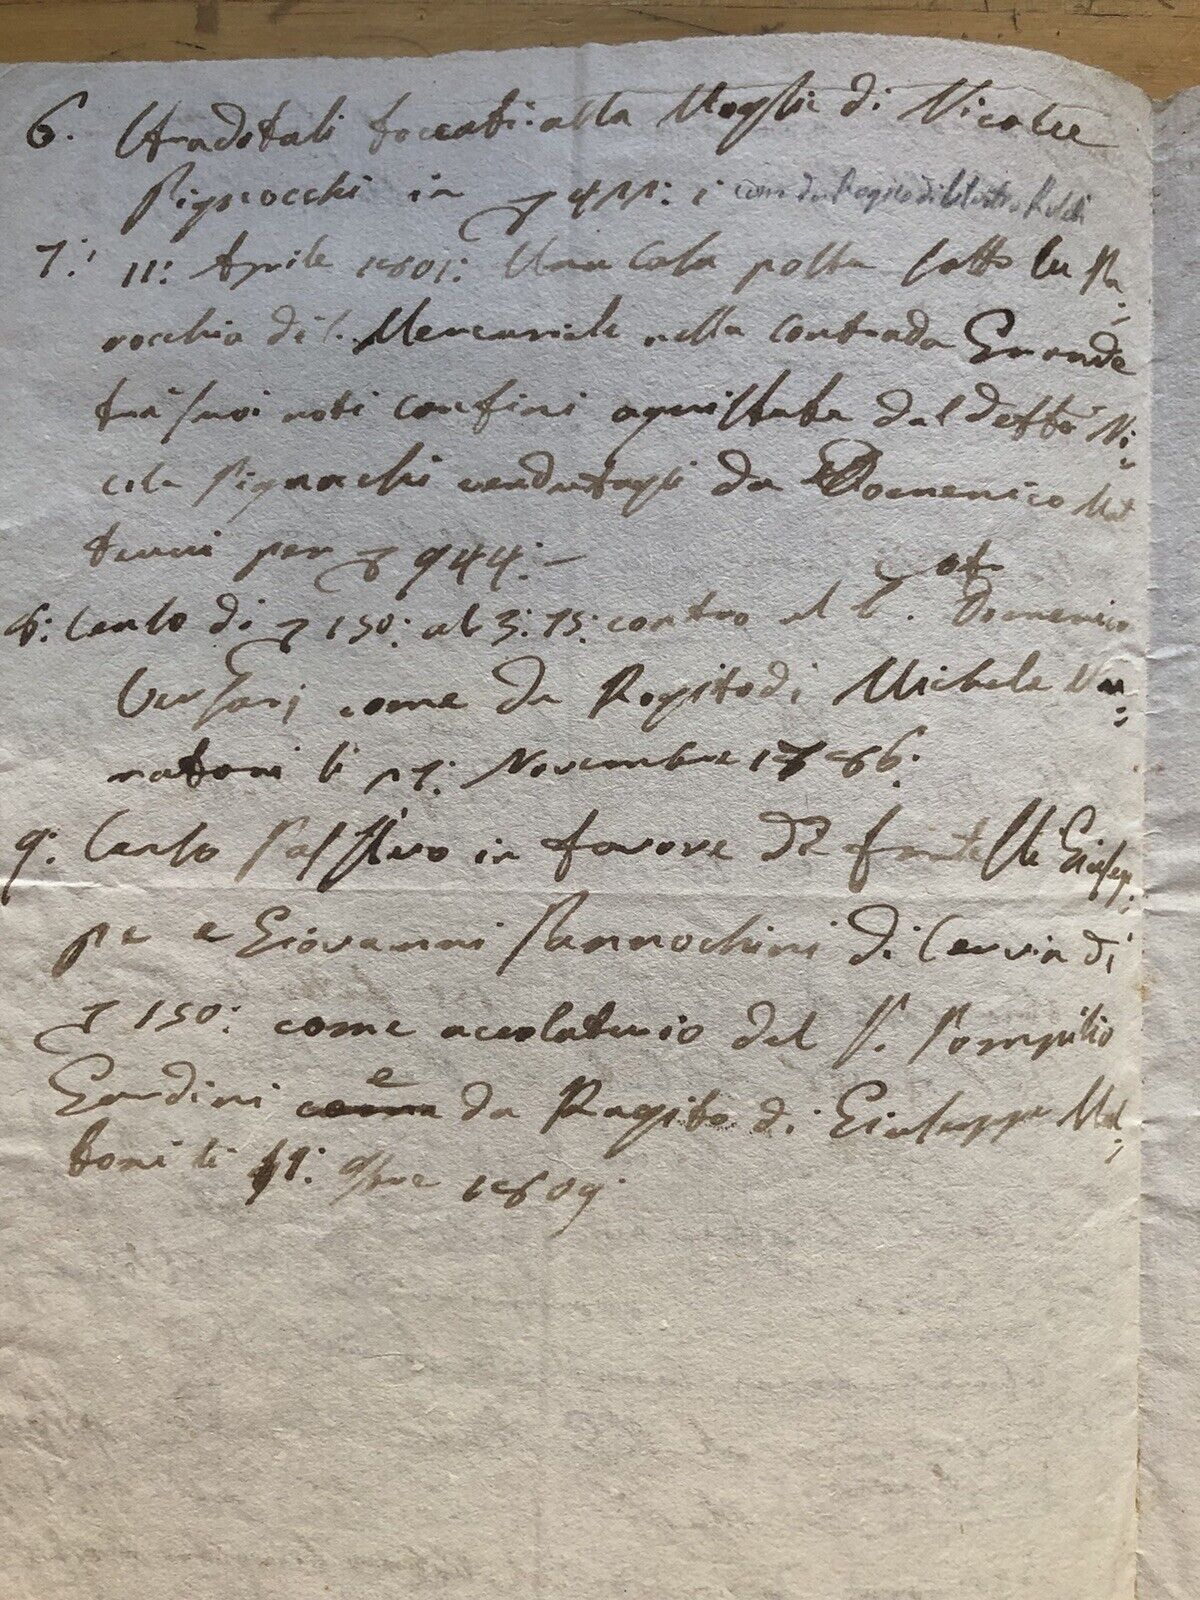 6. Stradotali toccati alla Moglie di Nicola
Pignocchi in 
7: 11: Aprile 1801: Una Casa posta sotto la Pa=
rocchia di S. Mercuriale nella Contrada Grande
trà suoi noti confini aquistata dal detto Ni=
cola Pignocchi vendutagli da Domenico Mat
teucci per 944:-
8: Censo di 150: al 3: 75: contro al C. Domenico
Versarj come da Rogito di Michele Ma=
ratoni li 17: Novembre 1786:
9: Censo Passivo in favore de fratelli Giusep=
pe e Giovanni Pannochini di Cervia di
150: come accolatario del S. Pompilio
Gardini e da Rogito di Giuseppe Mat=
toni li 9bre 1809.